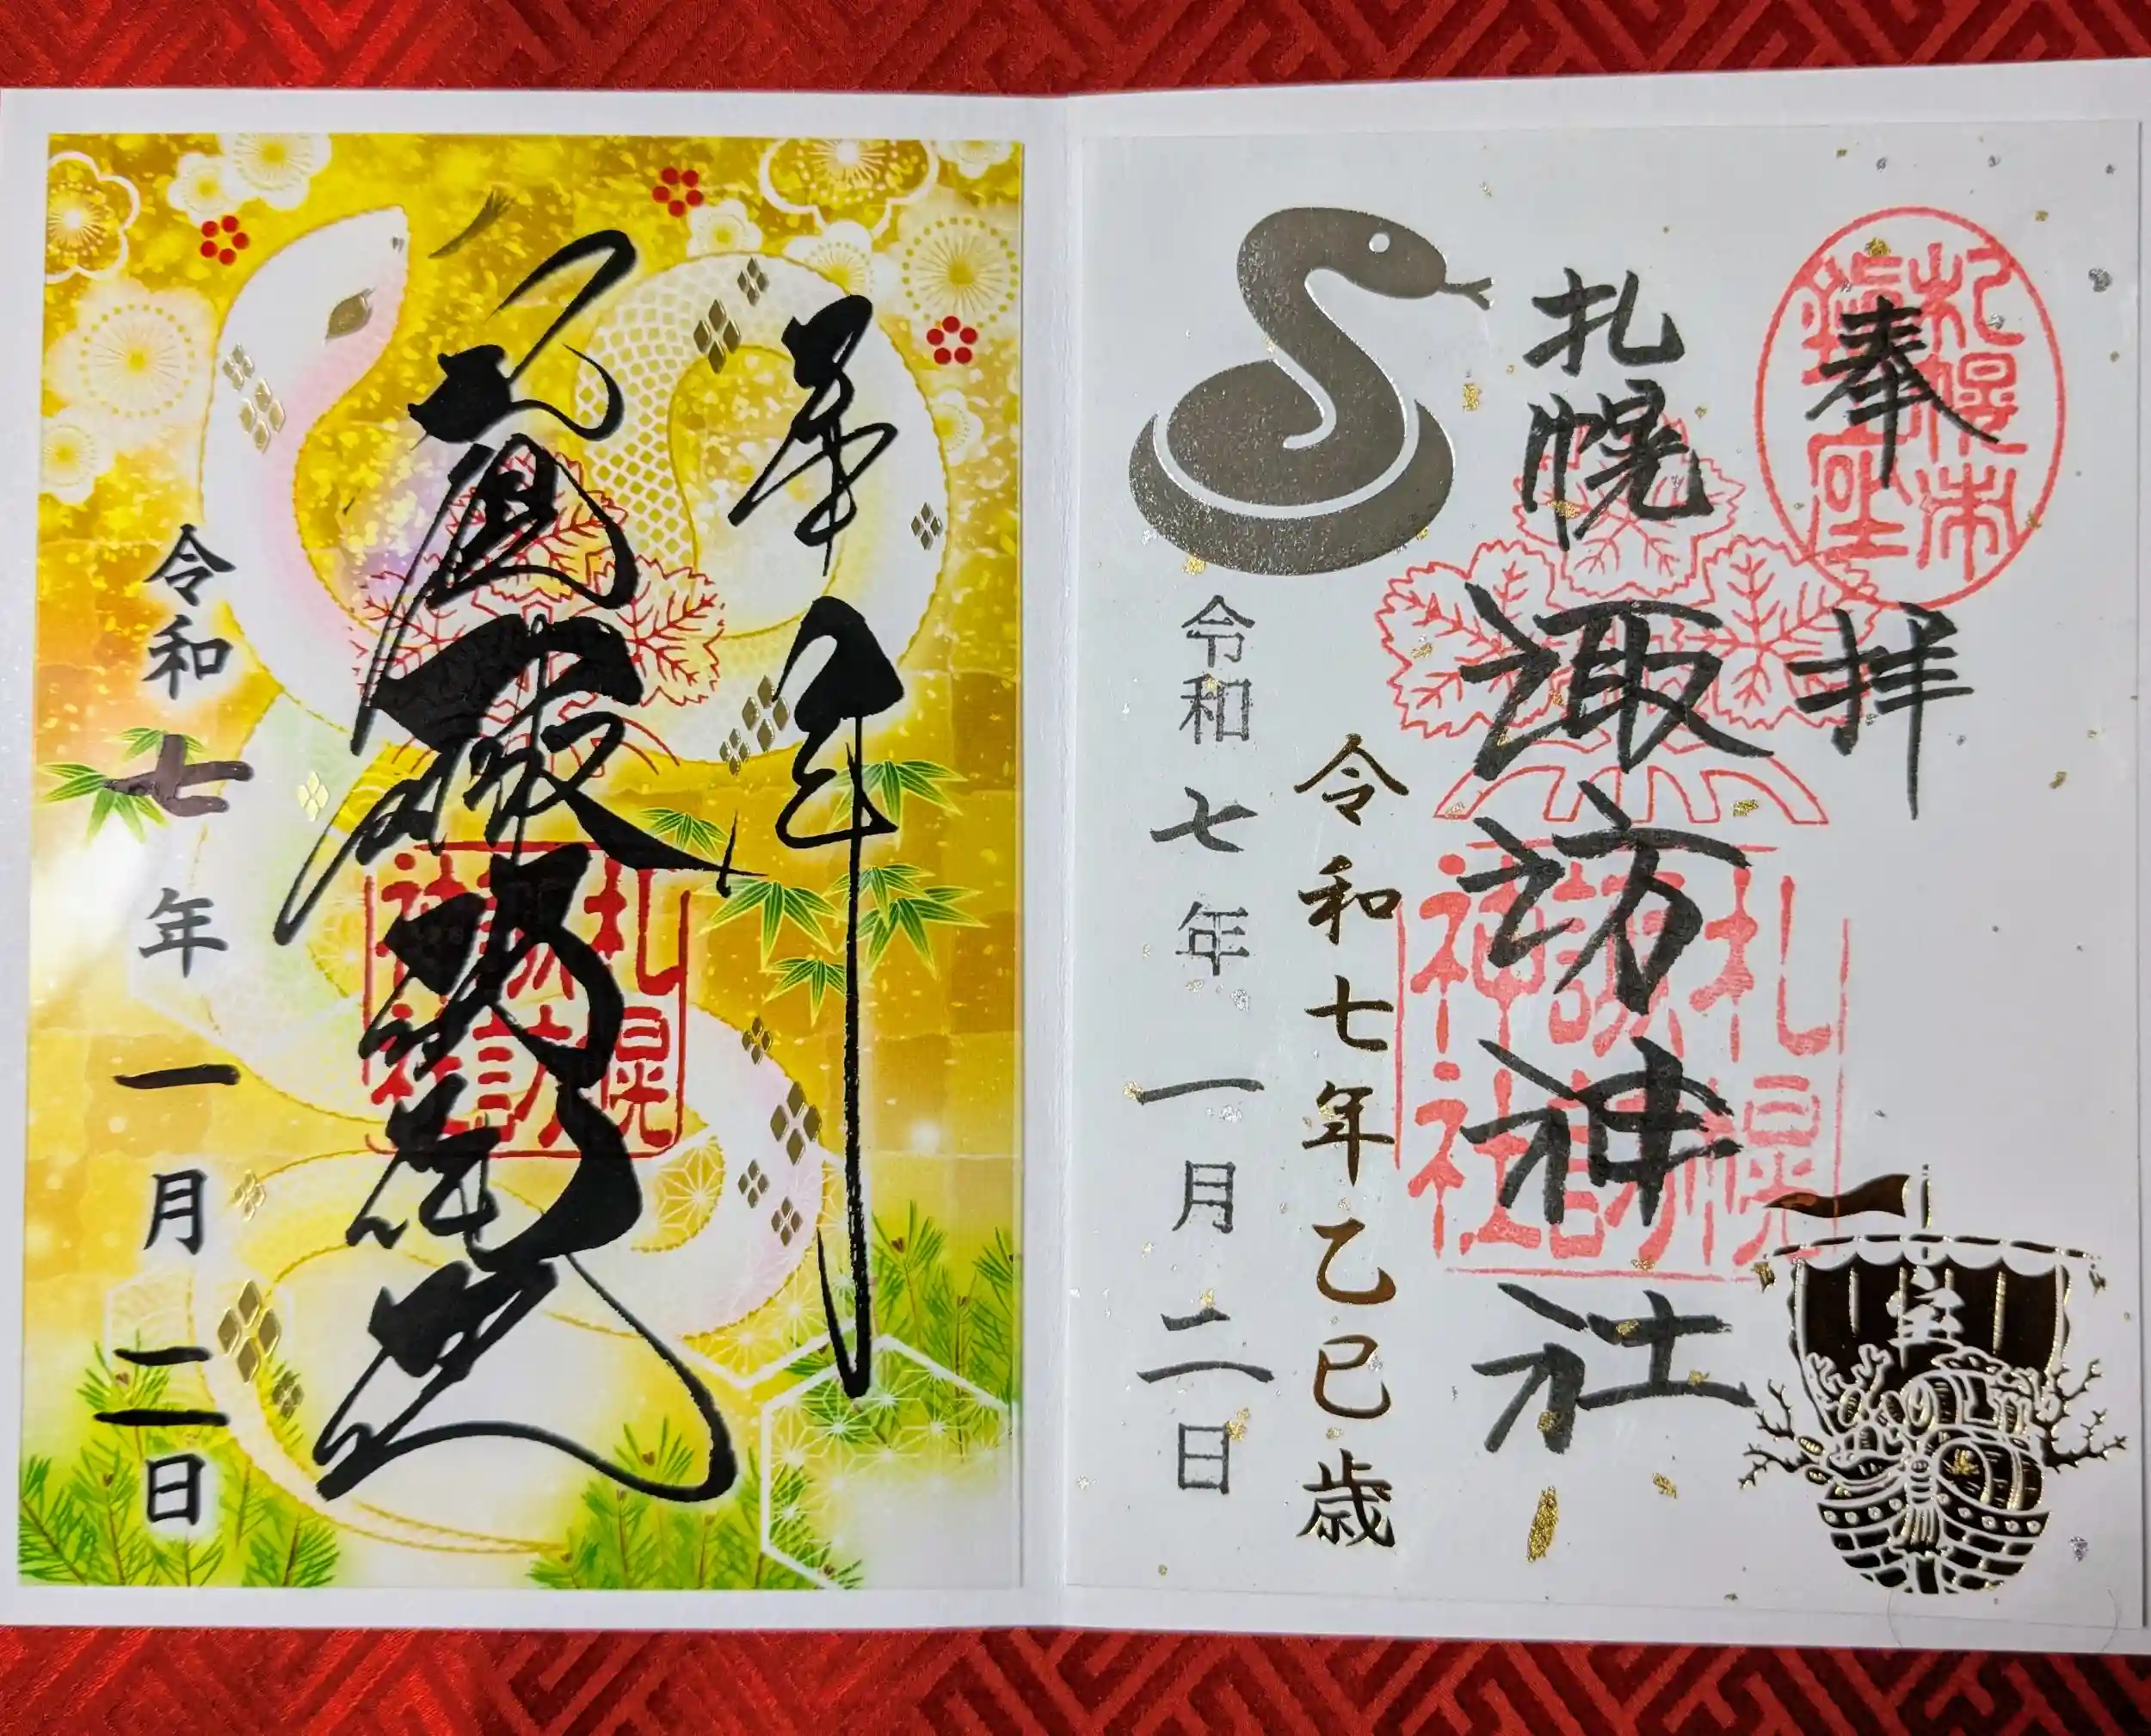 奉拝
札幌市鎮座
札幌諏訪神社
札幌
諏訪
神社
令和七年乙巳歳
令和七年一月二日
宝
奉拝
札幌
諏訪
神社
令和七年一月二日